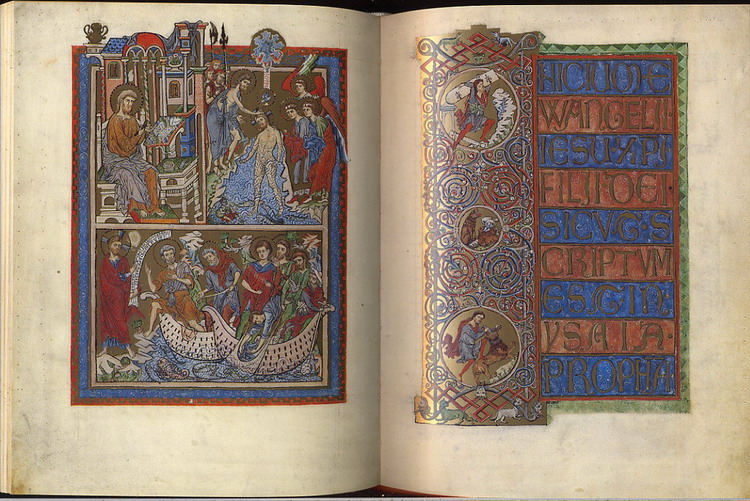 INICIUM E
WANGELII
IESU XPI
FILII DEI
SICUT S
CRIPTUM
EST IN
YSAIA·
PROPHA